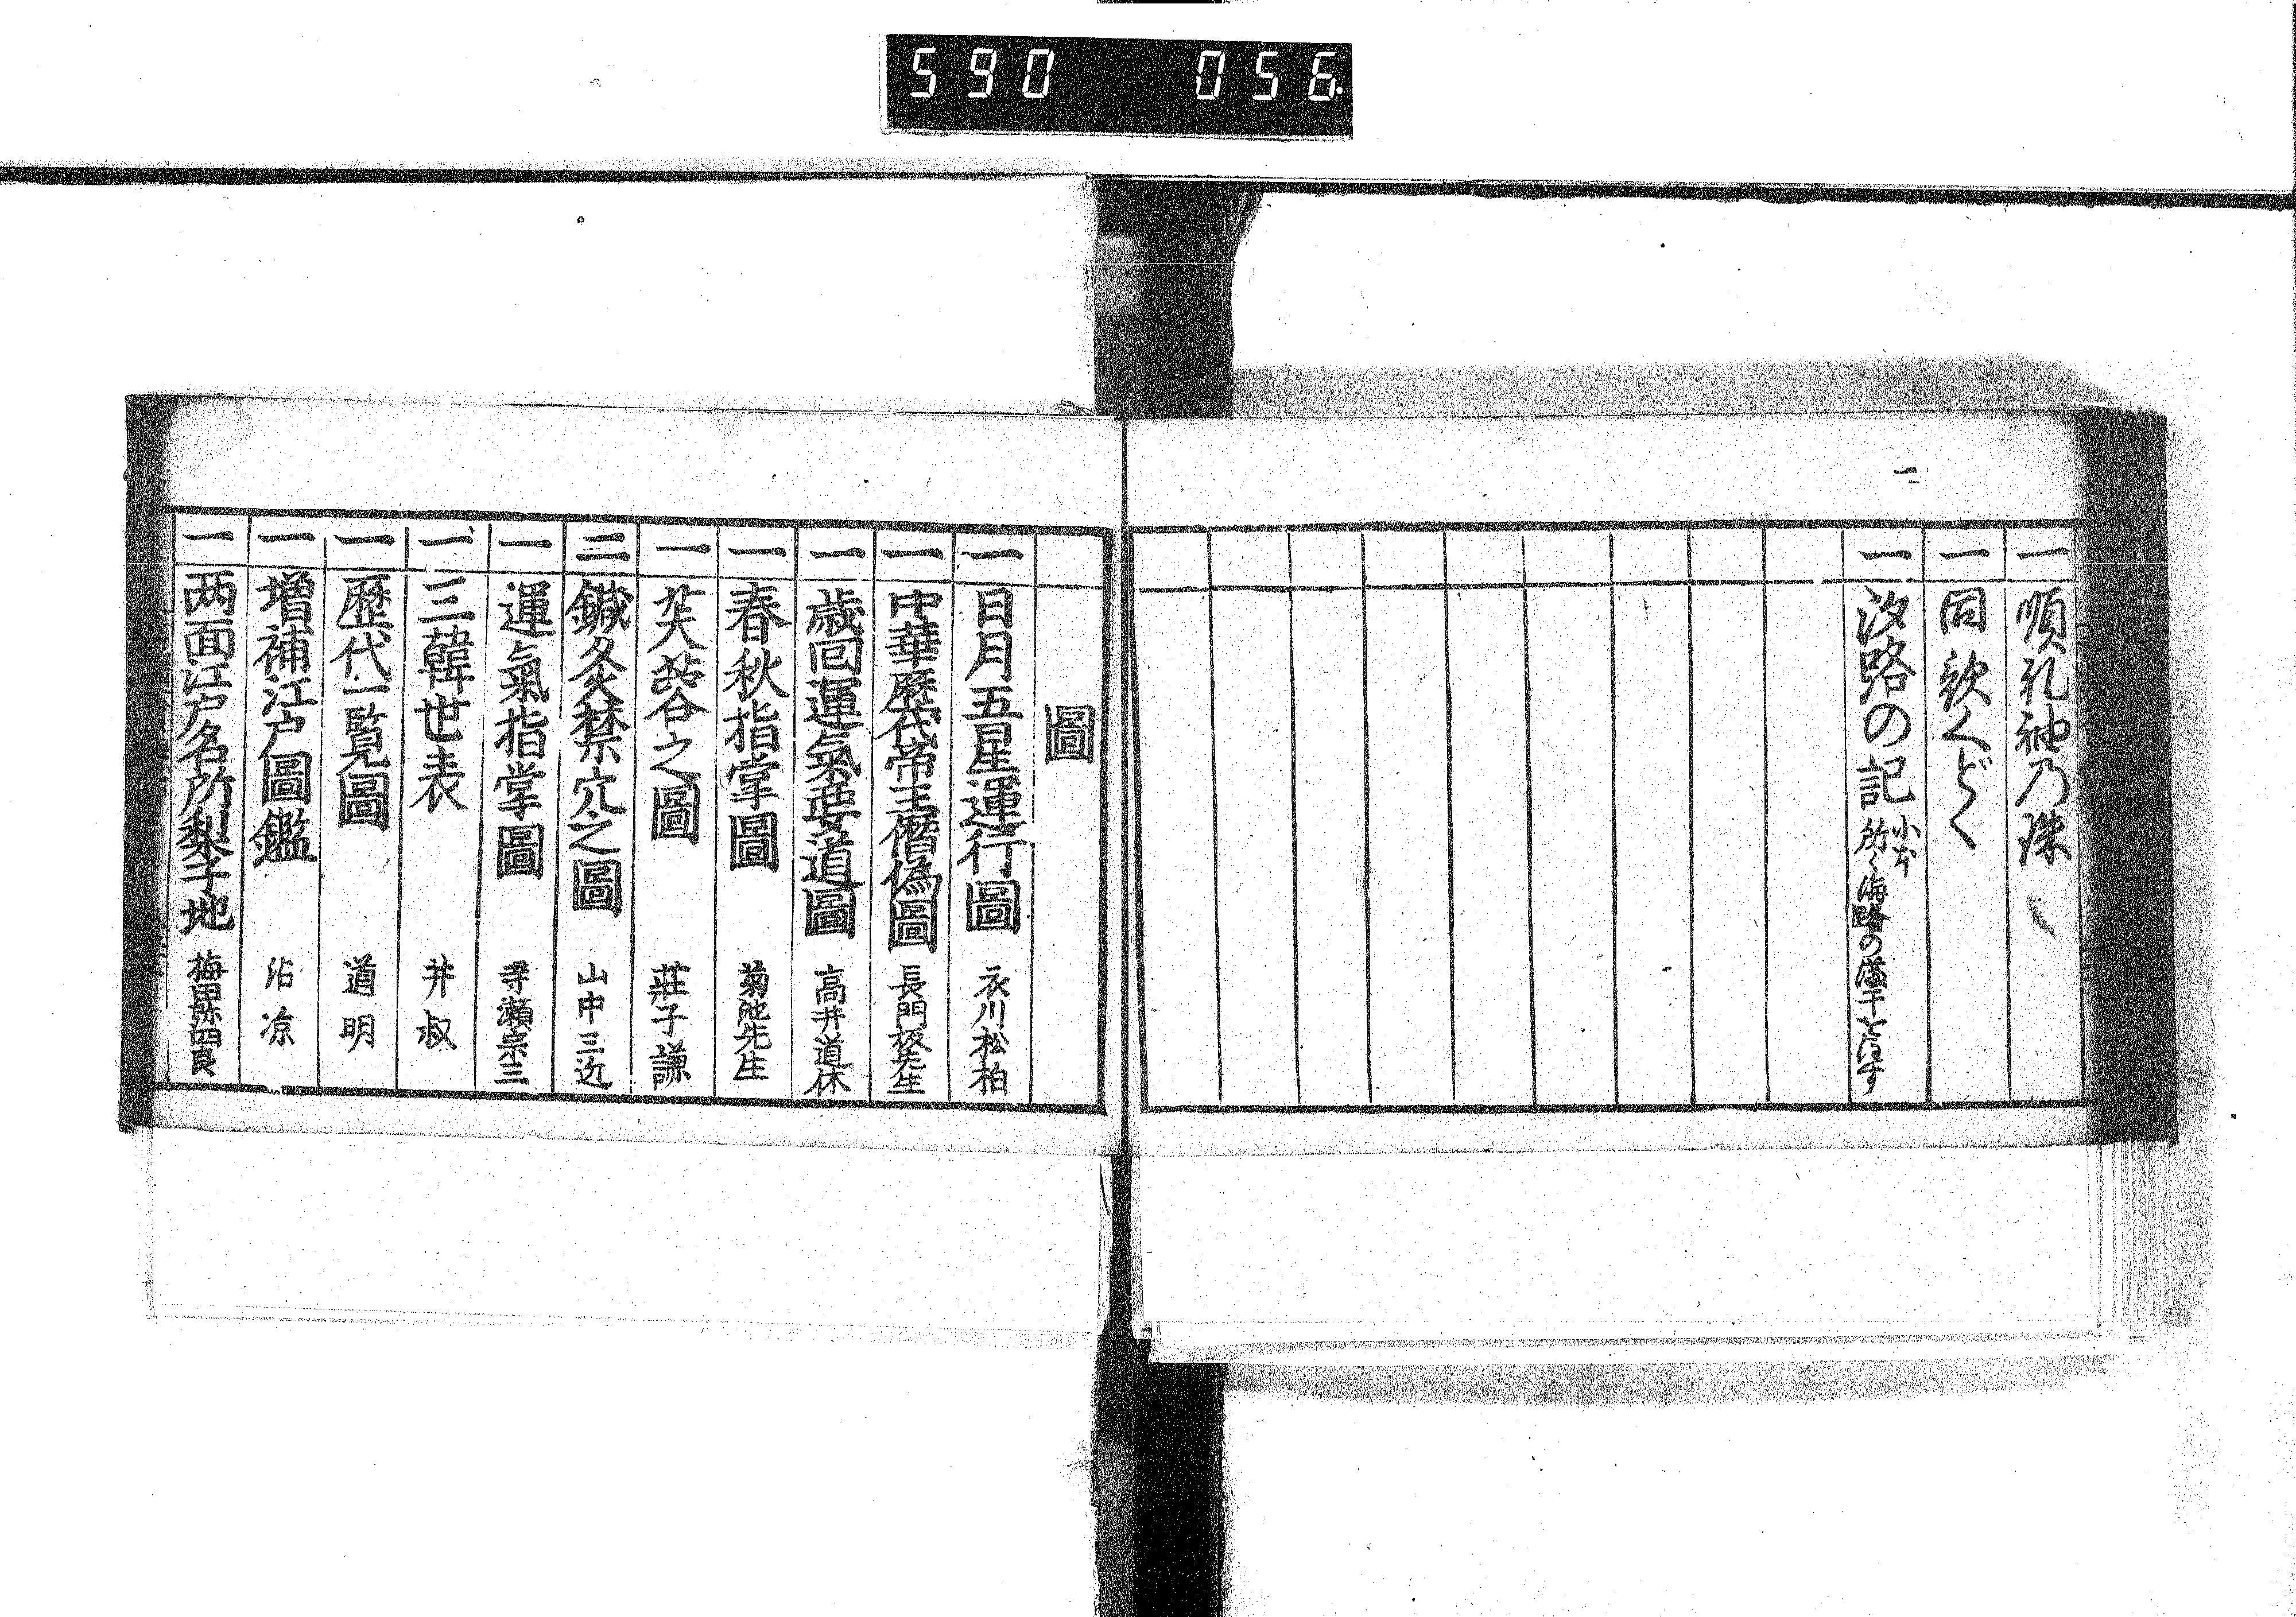 590 056
一 順礼袖乃珠
一 同歌くどく
一 汐路の記 小本 所々海路の満干をしるす
圖
一 日月五星運行圖 衣川松柏
一 中華歴代帝王僭偽圖 長門板先生
一 歳回運氣要道圖 高井道休
一 春秋指掌圖 菊池先生
一 之圖 莊子謙
二 鍼灸禁穴之圖 山中三近
一 運氣指掌圖 寺瀬宗三
一 三韓世表 井叔
一 歴代一覧圖 道明
一 増補江戸圖鑑 沾凉
一 两面江戸名所梨子地 梅田弥四良